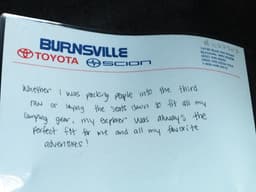 BURNSVILLE
TOYOTA SCION
Whether I was packing people into the third
row or laying the seats down to fit all my
camping gear, my explorer was always the
perfect fit for me and all my favorite
adventures!